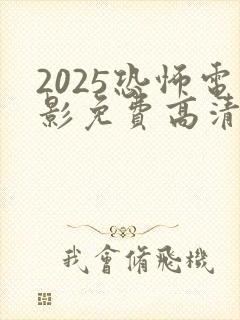 2025恐怖電
影免費高清
我會脩飛機